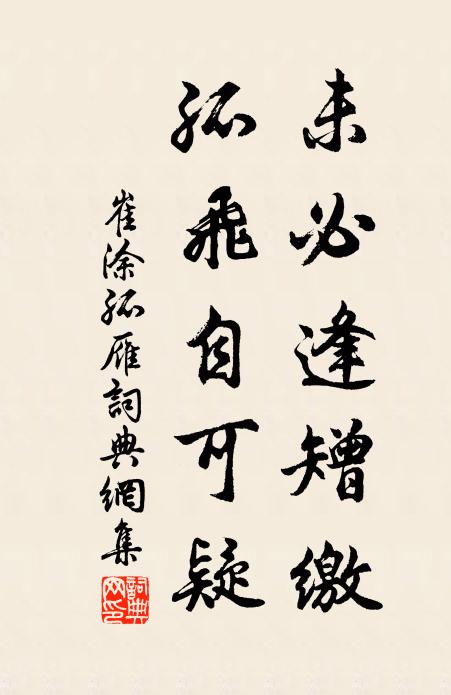 未必逢矰繳
孤飛自可疑
崔涂孤雁詞典網集
詞典網印